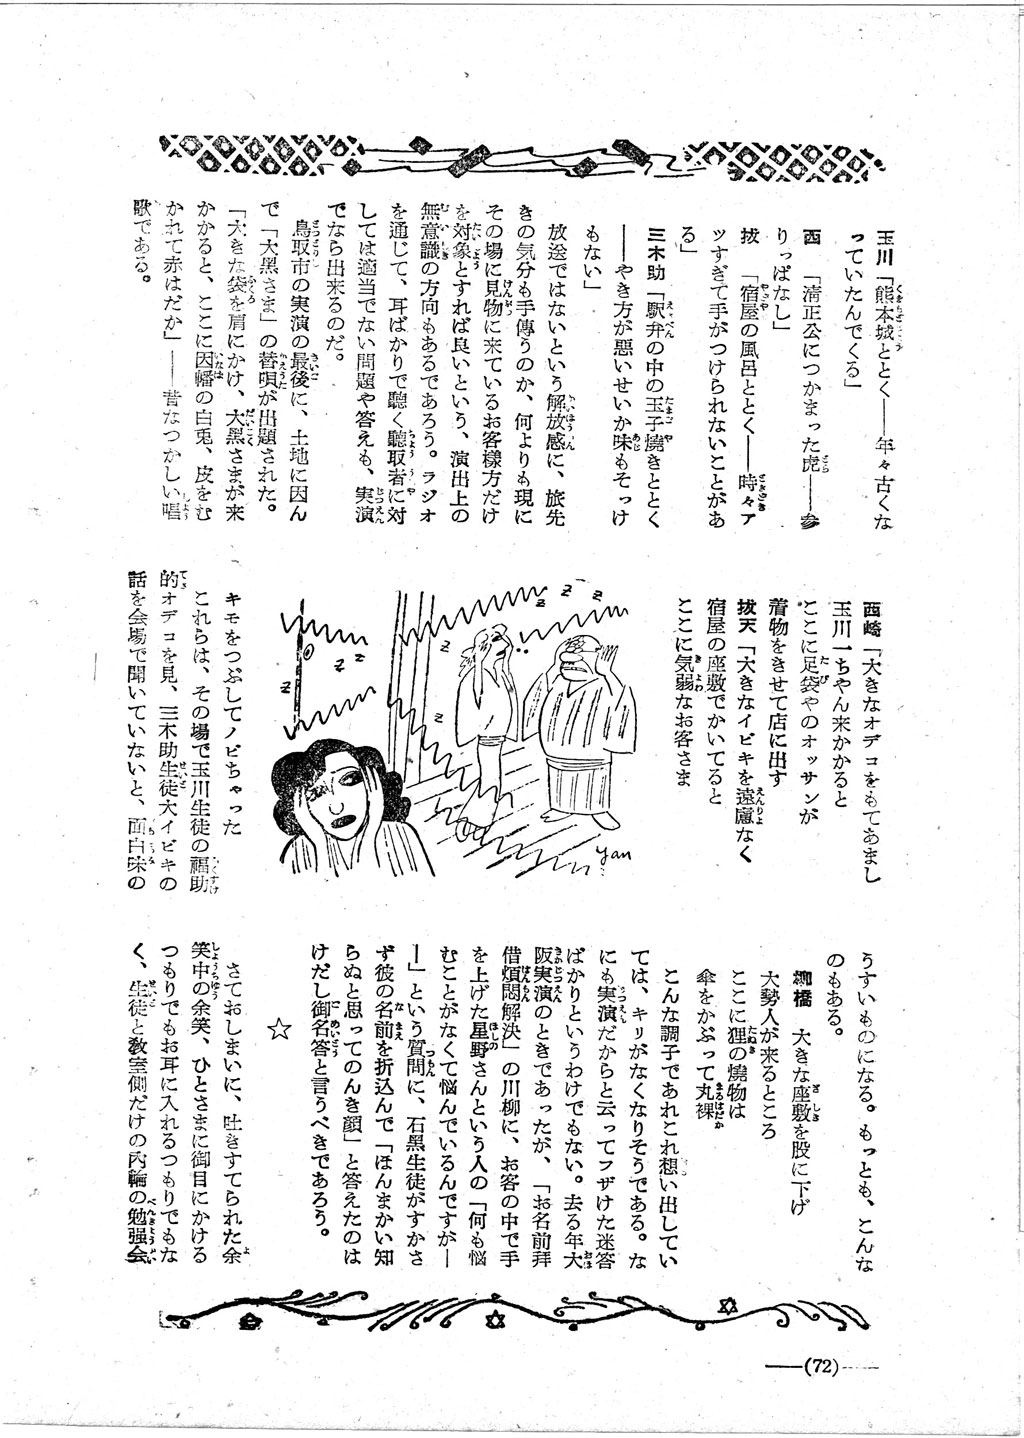 玉川「熊本城ととく――年々古くな
っていたんでくる」
西　「清正公につかまった虎――参
りっぱなし」
抜　「宿屋の風呂ととく――時々ア
ツすぎて手がつけられないことがあ
る」
三木助「駅弁の中の玉子燒きととく
――やき方が悪いせいか味もそっけ
もない」
放送ではないという解放感に、旅先
きの気分も手傳うのか、何よりも現に
その場に見物に来ているお客様方だけ
を対象とすれば良いという、演出上の
無意識の方向もあるであろう。ラジオ
を通じて、耳ばかりで聴く聽取者に対
しては適当でない問題や答えも、実演
でなら出来るのだ。
鳥取市の実演の最後に、土地に因ん
で「大黑さま」の替唄が出題された。
「大きな袋を肩にかけ、大黑さまが来
かかると、ここに因幡の白兎、皮をむ
かれて赤はだか」――昔なつかしい唱
歌である。
西崎「大きなオデコをもてあまし
玉川一ちゃん来かかると
ここに足袋やのオッサンが
着物をきせて店に出す
抜天「大きなイビキを遠慮なく
宿屋の座敷でかいてると
ここに気弱なお客さま
z z z z z z z z
yan
キモをつぶしてノビちゃった
これらは、その場で玉川生徒の福助
的オデコを見、三木助生徒大イビキの
話を会場で聞いていないと、面白味の
うすいものになる。もっとも、こんな
のもある。
柳橋　大きな座敷を股に下げ
大勢人が来るところ
ここに狸の燒物は
傘をかぶって丸裸
こんな調子であれこれ想い出してい
ては、キリがなくなりそうである。な
にも実演だからと云ってフザけた迷答
ばかりというわけでもない。去る年大
阪実演のときであったが、「お名前拜
借煩悶解決」の川柳に、お客の中で手
を上げた星野さんという人の「何も悩
むことがなくて悩んでいるんですが―
―」という質問に、石黒生徒がすかさ
ず彼の名前を折込んで「ほんまかい知
らぬと思ってのんき顔」と答えたのは
けだし御名答と言うべきであろう。
☆
さておしまいに、吐きすてられた余
笑中の余笑、ひとさまに御目にかける
つもりでもお耳に入れるつもりでもな
く、生徒と教室側だけの内輪の勉强会
――(72)――